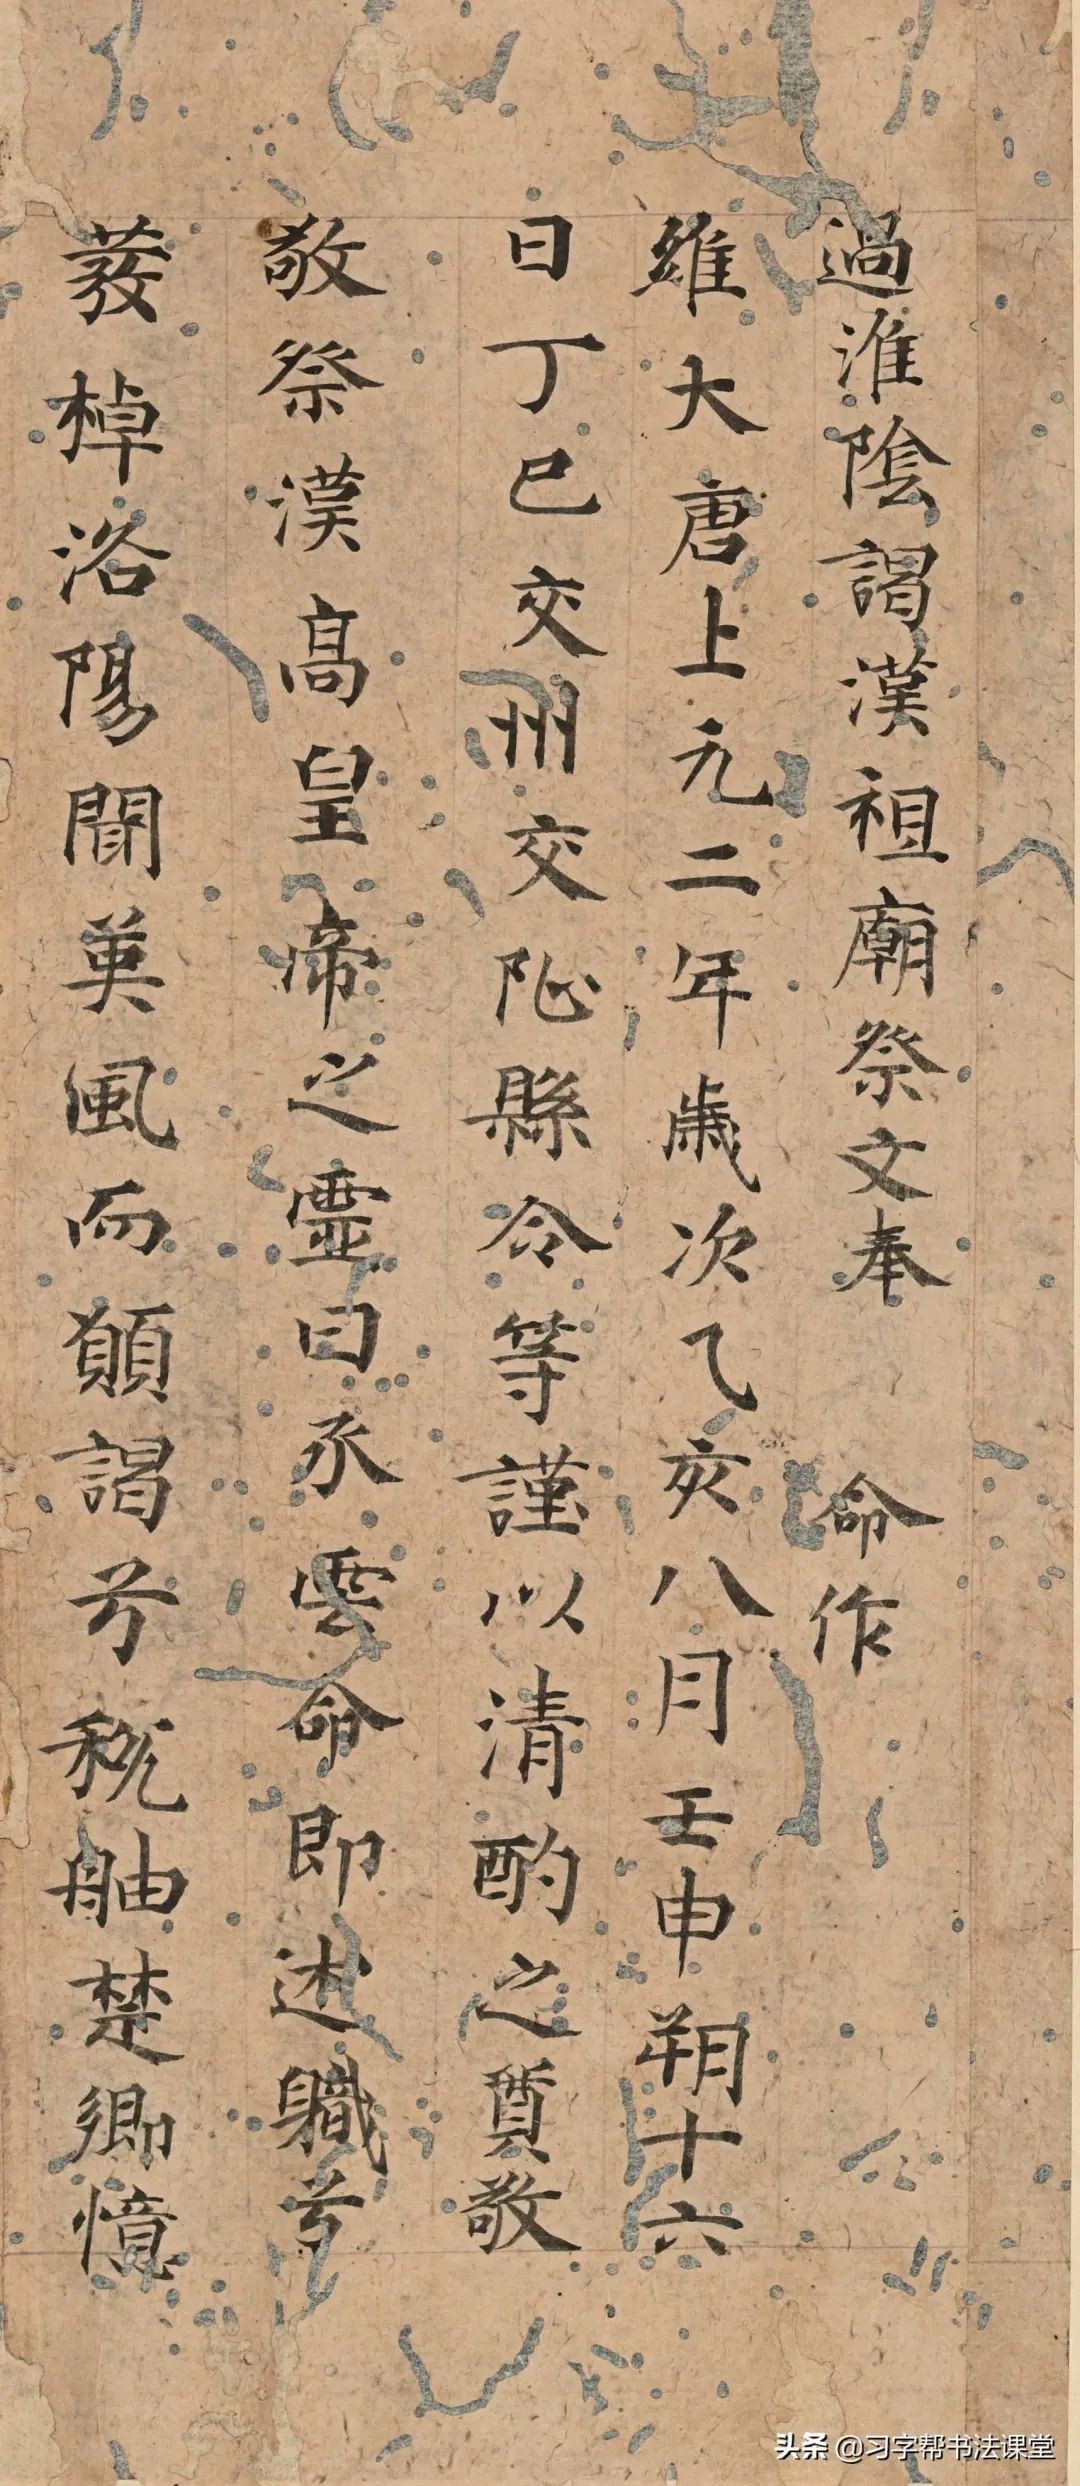 過淮陰謁漢祖廟祭文奉　命作
維大唐上元二年歲次乙亥八月壬申朔十六
日丁巳交州交阯縣令等謹以清酌之奠敬
敬祭漢高皇帝之靈曰承雲命即述職兮
發棹洛陽聞英風而願謁兮税舳楚鄉憶
头条 @习字帮书法课堂